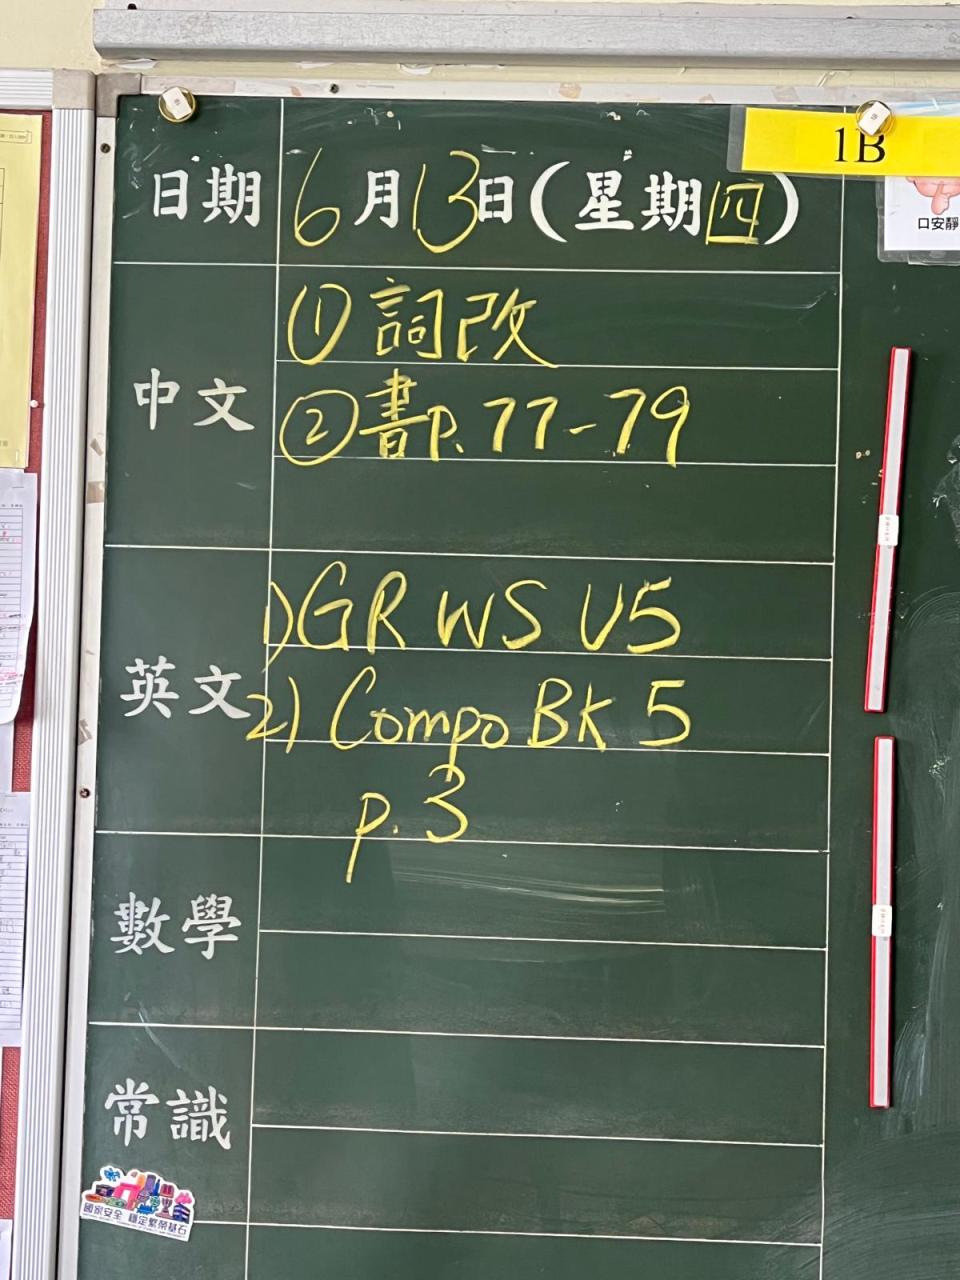 1B
口安靜
日期 6月13日(星期四)
中文
① 詞改
② 書p. 77-79
英文
1) GR WS U5
2) Compo BK 5
p. 3
數學
常識
國家安全 穩定繁榮基石